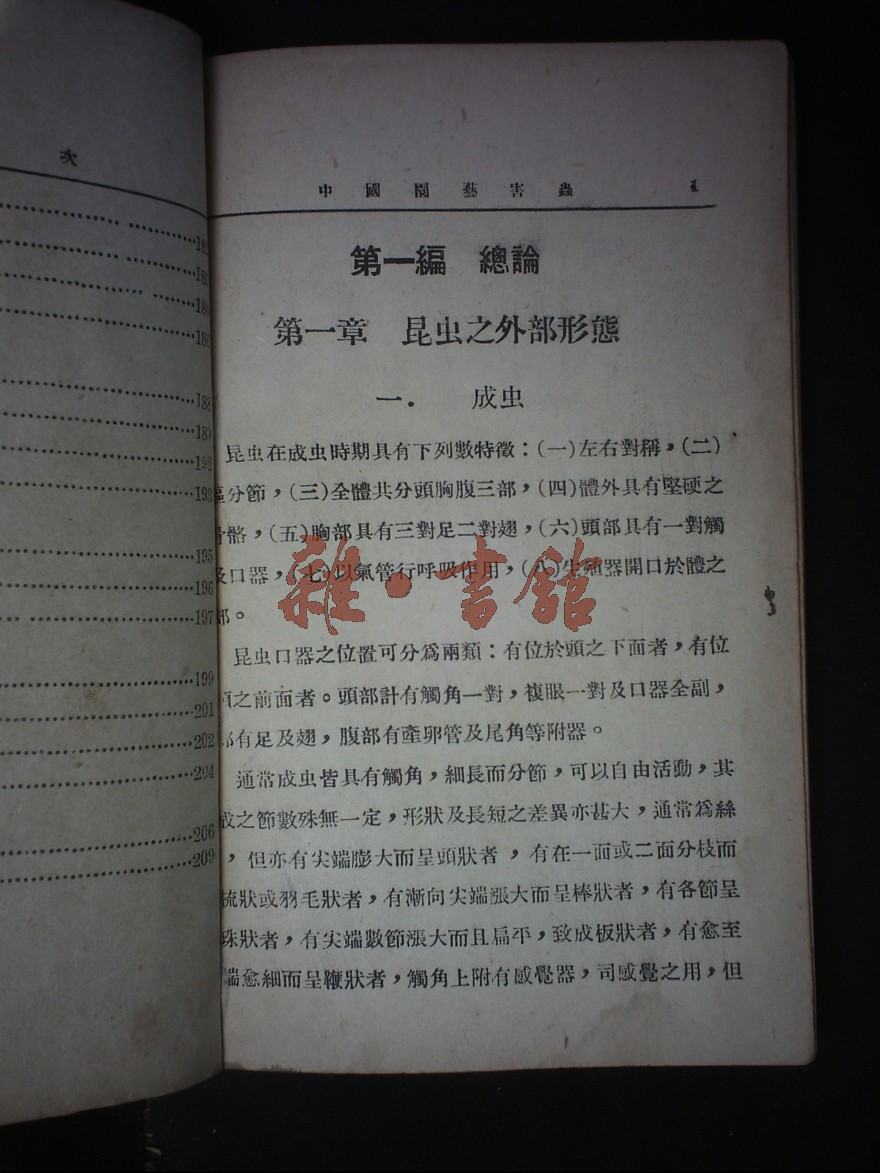 次
182
186
188
189
192
193
195
196
197
199
201
202
204
206
209
中國園藝害蟲 1
第一編 總論
第一章 昆虫之外部形態
一. 成虫
昆虫在成虫時期具有下列數特徵：(一)左右對稱，(二)
分節，(三)全體共分頭胸腹三部，(四)體外具有堅硬之
骨骼，(五)胸部具有三對足二對翅，(六)頭部具有一對觸
及口器，(七)以氣管行呼吸作用，(八)生殖器開口於體之
部。
昆虫口器之位置可分爲兩類：有位於頭之下面者，有位
頭之前面者。頭部計有觸角一對，複眼一對及口器全副，
部有足及翅，腹部有產卵管及尾角等附器。
通常成虫皆具有觸角，細長而分節，可以自由活動，其
成之節數殊無一定，形狀及長短之差異亦甚大，通常爲絲
，但亦有尖端膨大而呈頭狀者，有在一面或二面分枝而
梳狀或羽毛狀者，有漸向尖端漲大而呈棒狀者，有各節呈
珠狀者，有尖端數節漲大而且扁平，致成板狀者，有愈至
端愈細而呈鞭狀者，觸角上附有感覺器，司感覺之用，但
雜·書館